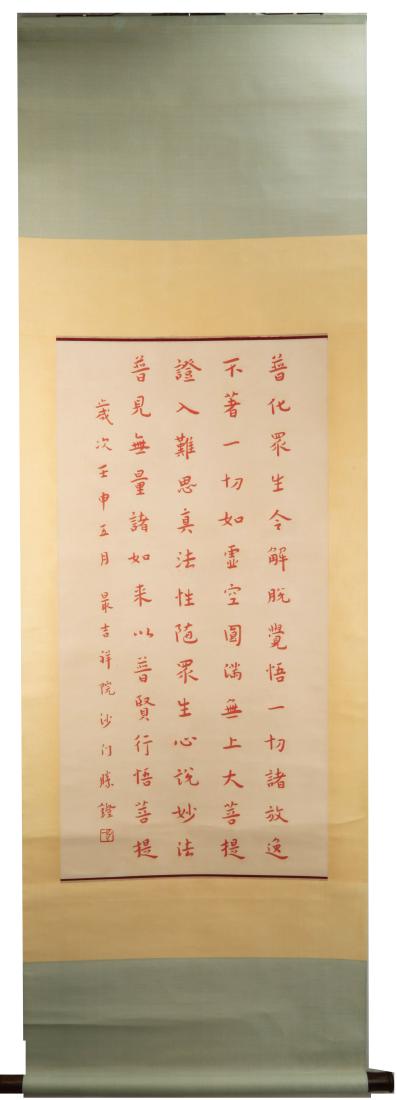 普化眾生令解脫覺悟一切諸放逸
不著一切如虛空圓滿無上大菩提
證入難思真法性隨眾生心說妙法
普見無量諸如来以普賢行悟菩提
歲次壬申五月最吉祥院沙门勝鐙